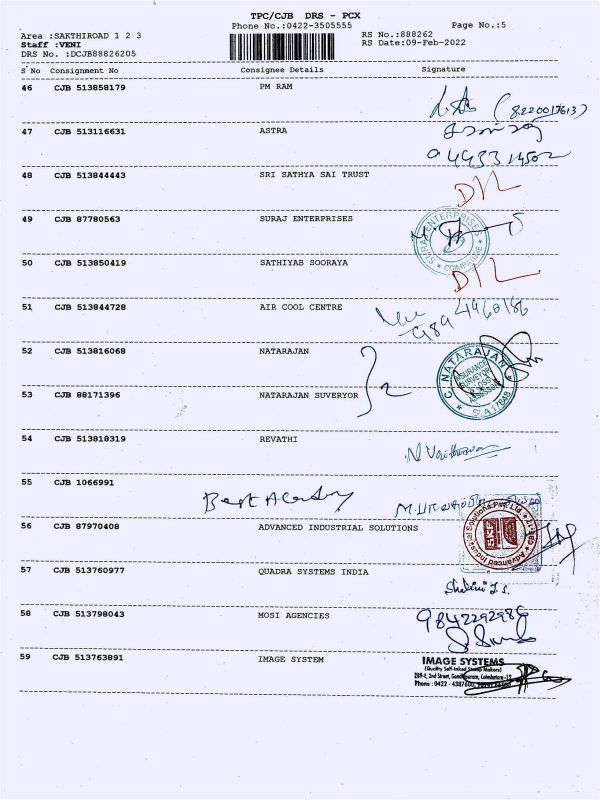 TPC/CJB DRS - PCX
Phone No.:0422-3505555 Page No.:5
Area :SAKTHIROAD 1 2 3 RS No.:888262
Staff :VENI RS Date:09-Feb-2022
DRS No. :DCJB88826205
S No Consignment No Consignee Details Signature
46 CJB 513858179 PM RAM
(8220017613)
47 CJB 513116631 ASTRA
48 CJB 513844443 SRI SATHYA SAI TRUST
D/L
49 CJB 87780563 SURAJ ENTERPRISES
SURAJ ENTERPRISES
50 CJB 513850419 SATHIYAB SOORAYA
D/L
51 CJB 513844728 AIR COOL CENTRE
52 CJB 513816068 NATARAJAN
C. NATARAJAN
INSURANCE
SURVEYOR
& LOSS
ASSESSOR
53 CJB 88171396 NATARAJAN SUVERYOR
2
54 CJB 513818319 REVATHI
55 CJB 1066991
56 CJB 87970408 ADVANCED INDUSTRIAL SOLUTIONS
Advanced Industrial Solutions Pvt. Ltd.
57 CJB 513760977 QUADRA SYSTEMS INDIA
58 CJB 513798043 MOSI AGENCIES
9842292986
59 CJB 513763891 IMAGE SYSTEM
IMAGE SYSTEMS
(Quality Self-Inked Stamp Makers)
2nd Street, Gandhipuram, Coimbatore-12
Phone : 0422 - 4387600,